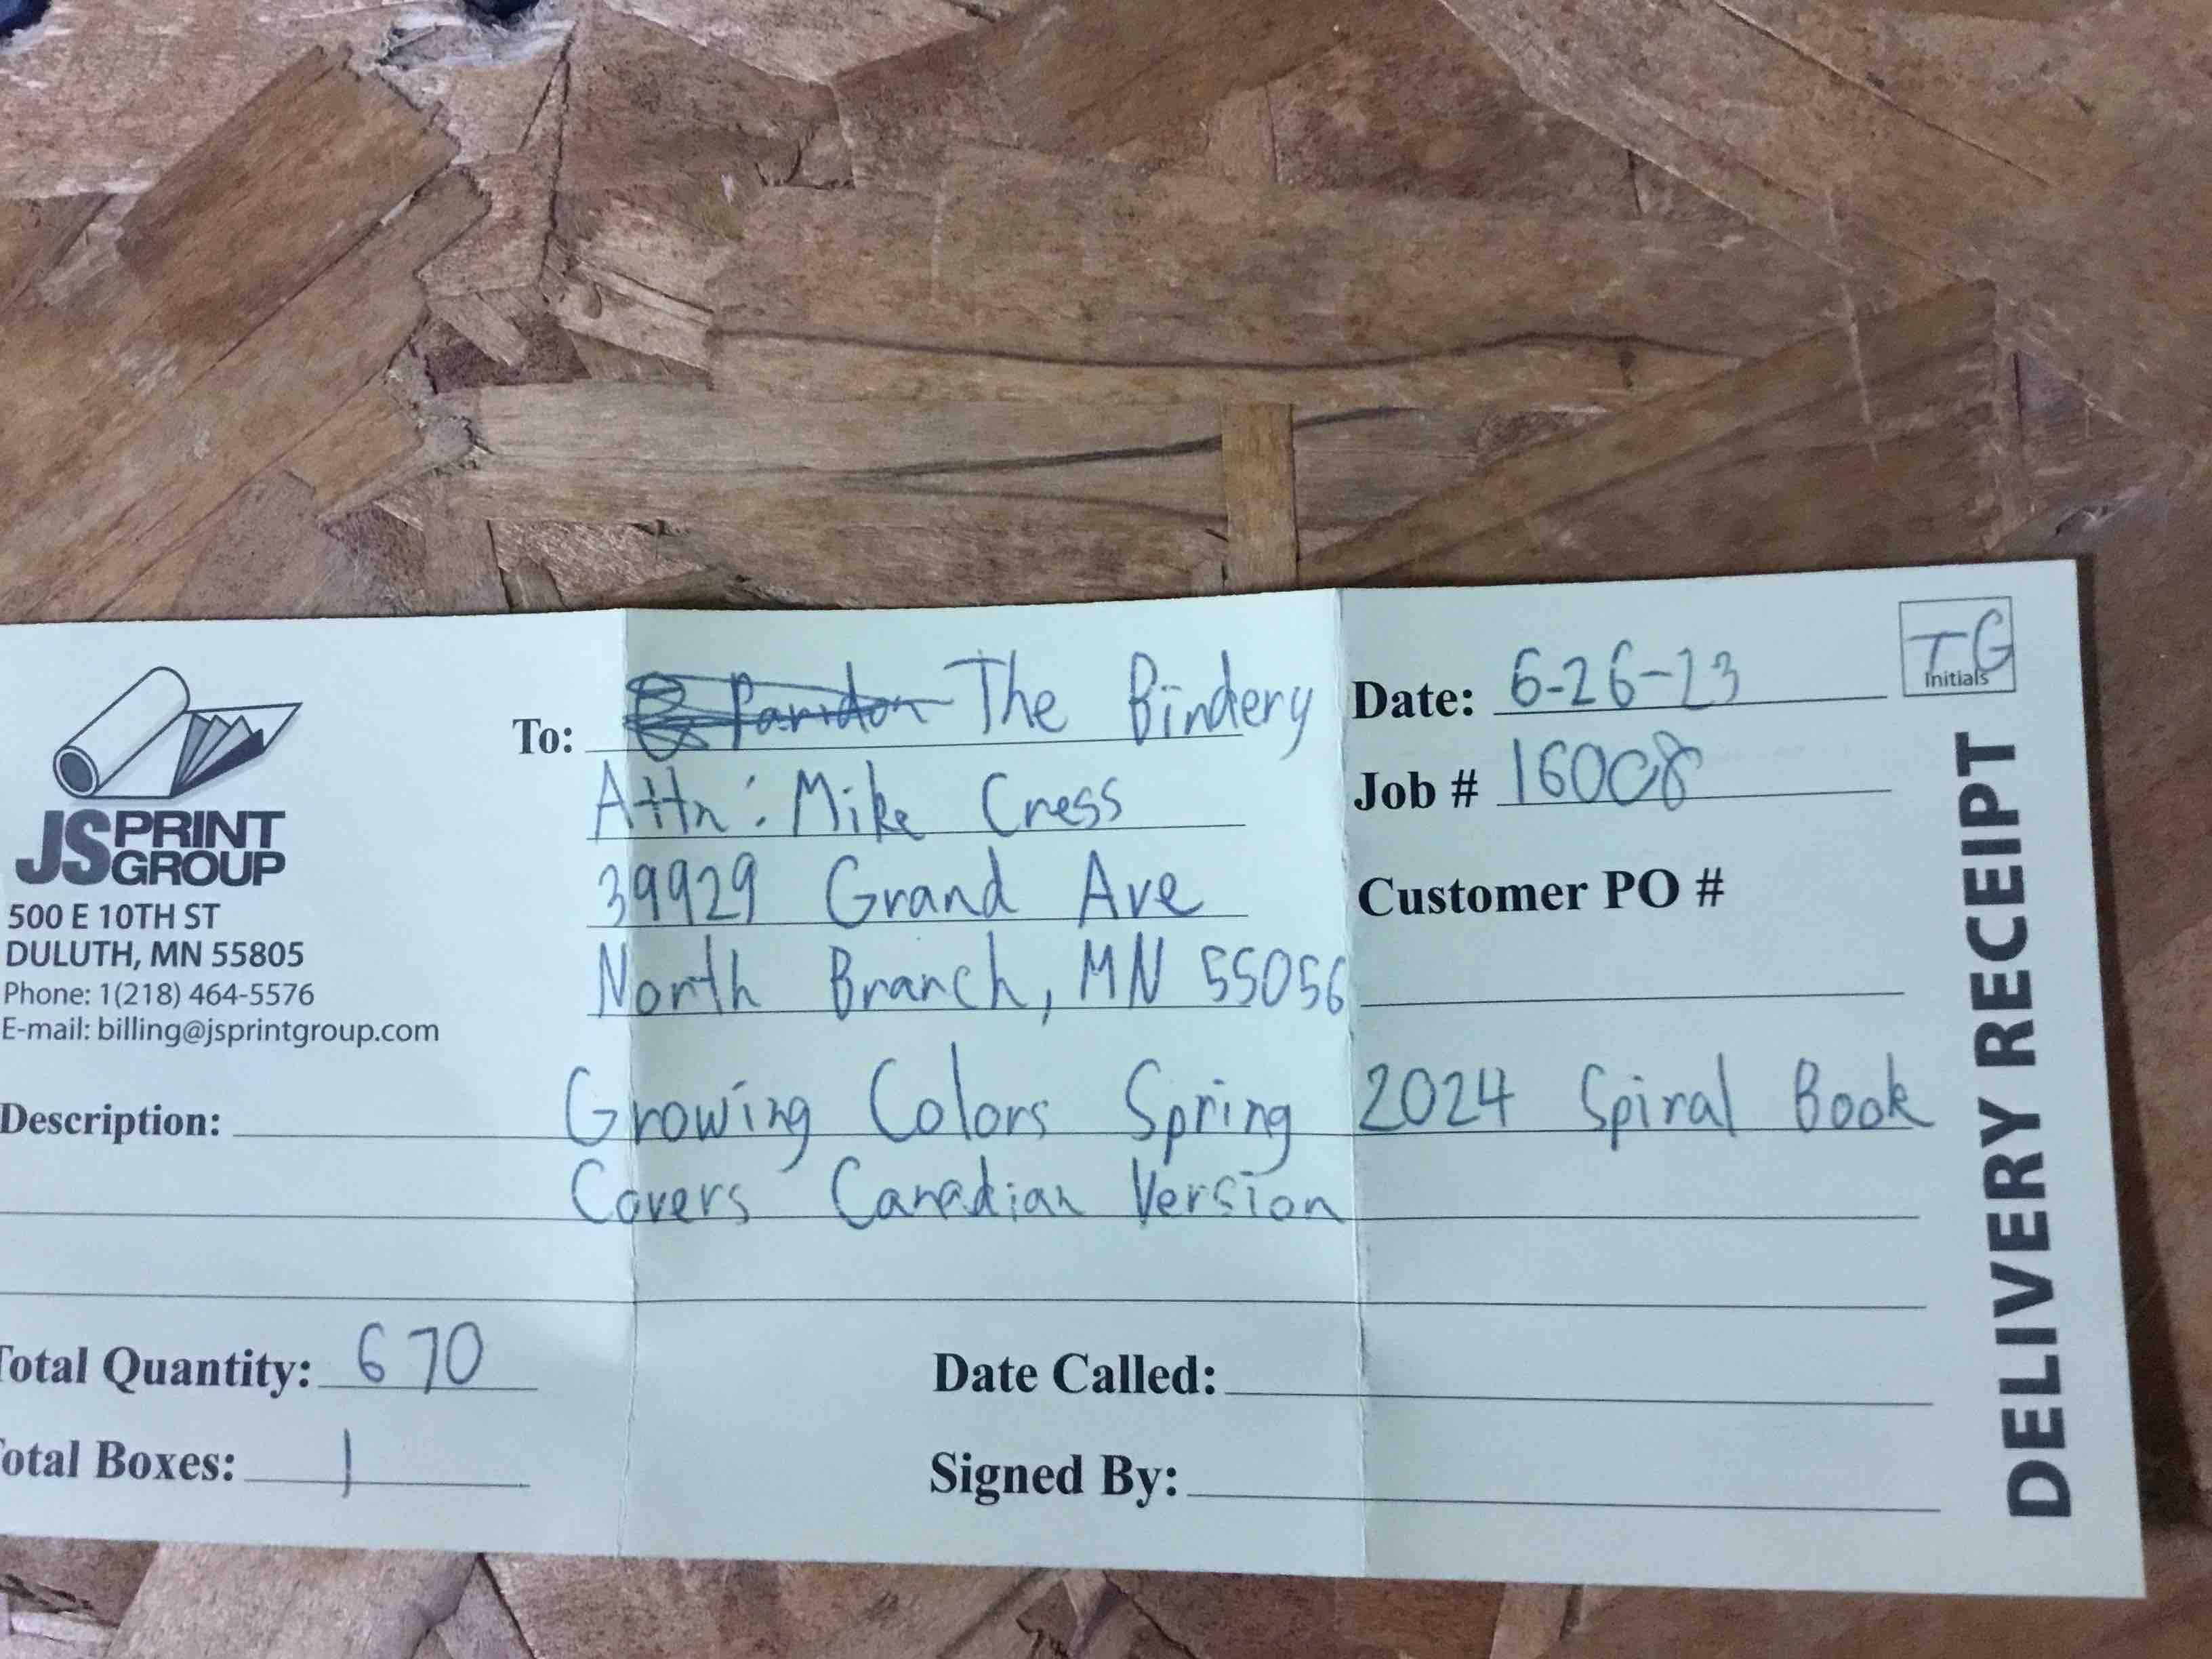 JS PRINT GROUP
500 E 10TH ST
DULUTH, MN 55805
Phone: 1(218) 464-5576
E-mail: billing@jsprintgroup.com
To: The Bindery
Attn: Mike Cress
39929 Grand Ave
North Branch, MN 55056
Date: 6-26-23
TG
Initials
Job # 16008
Customer PO #
DELIVERY RECEIPT
Description: Growing Colors Spring 2024 Spiral Book
Covers Canadian Version
Total Quantity: 670
Total Boxes: 1
Date Called:
Signed By: